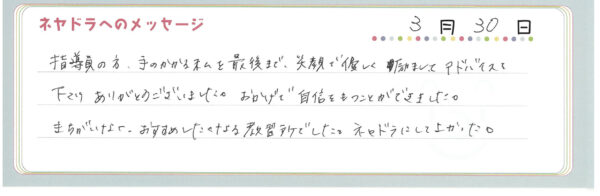 ネヤドラへのメッセージ
3月30日
指導員の方、手のかかる私を最後まで、笑顔で優しく励ましてアドバイスを
下さり ありがとうございました。おかげで自信をもつことができました。
まちがいなく、おすすめしたくなる教習所でした。ネヤドラにしてよかった。